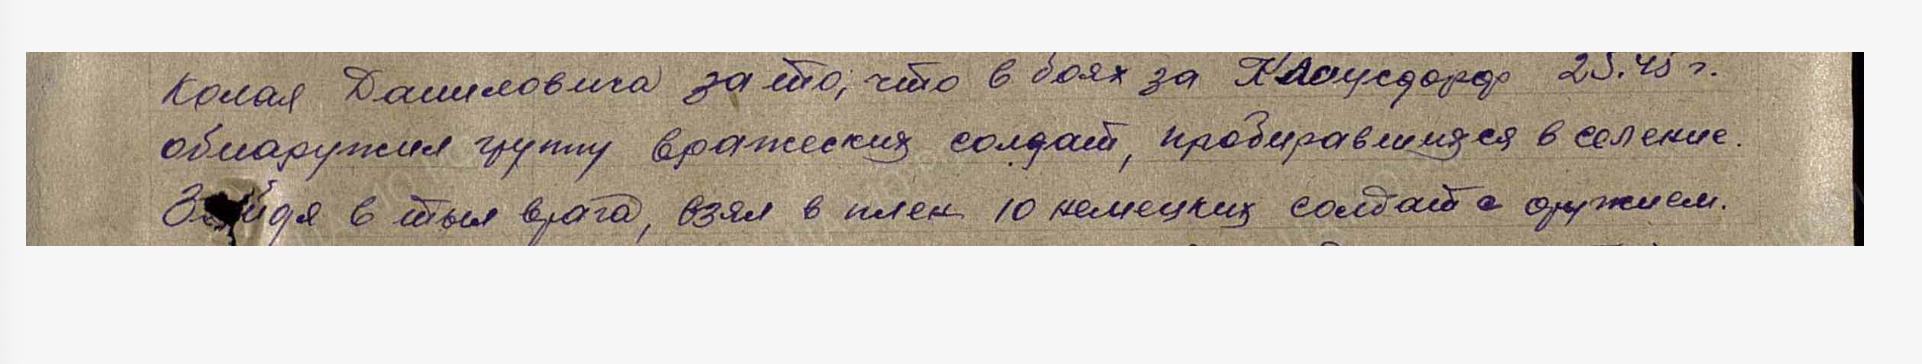 колая Даниловича за то, что в боях за Клаусдорф 25.45 г.
обнаружил группу вражеских солдат, пробиравшихся в селение.
Зайдя в тыл врага, взял в плен 10 немецких солдат с оружием.